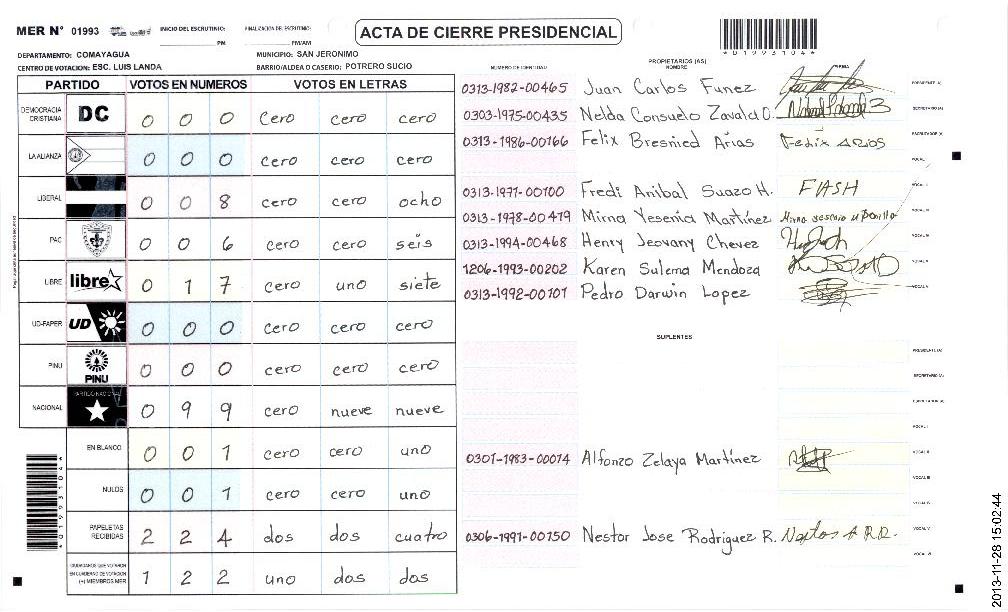 MER N° 01993
INICIO DEL ESCRUTINIO: PM
FINALIZACION DEL ESCRUTINIO: PM/AM
ACTA DE CIERRE PRESIDENCIAL
*01993104*
DEPARTAMENTO: COMAYAGUA
MUNICIPIO: SAN JERONIMO
CENTRO DE VOTACION: ESC. LUIS LANDA
BARRIO/ALDEA O CASERIO: POTRERO SUCIO
PARTIDO VOTOS EN NUMEROS VOTOS EN LETRAS
DEMOCRACIA CRISTIANA DC 0 0 0 cero cero cero
LA ALIANZA 0 0 0 cero cero cero
LIBERAL 0 0 8 cero cero ocho
PAC 0 0 6 cero cero seis
LIBRE libre 0 1 7 cero uno siete
UD-FAPER UD 0 0 0 cero cero cero
PINU PINU 0 0 0 cero cero cero
NACIONAL PARTIDO NACIONAL 0 9 9 cero nueve nueve
EN BLANCO 0 0 1 cero cero uno
NULOS 0 0 1 cero cero uno
PAPELETAS RECIBIDAS 2 2 4 dos dos cuatro
CIUDADANOS QUE VOTARON EN CUADERNO DE VOTACION (+) MIEMBROS MER 1 2 2 uno dos dos
*01993104*
NUMERO DE IDENTIDAD
PROPIETARIOS (AS)
NOMBRE
FIRMA
0313-1982-00465 Juan Carlos Funez PRESIDENTE (A)
0303-1975-00435 Nelda Consuelo Zavala O. SECRETARIO (A)
0313-1986-00166 Felix Bresnied Arias Felix Arias ESCRUTADOR (A)
VOCAL I
0313-1971-00100 Fredi Anibal Suazo H. FIASH VOCAL II
0313-1978-00479 Mirna Yesenia Martínez VOCAL III
0313-1994-00468 Henry Jeovany Chevez VOCAL IV
1206-1993-00202 Karen Sulema Mendoza VOCAL V
0313-1992-00101 Pedro Darwin Lopez VOCAL VI
SUPLENTES
PRESIDENTE (A)
SECRETARIO (A)
ESCRUTADOR (A)
VOCAL I
0301-1983-00014 Alfonzo Zelaya Martínez VOCAL II
VOCAL III
VOCAL IV
0306-1991-00150 Nestor Jose Rodriguez R. VOCAL V
VOCAL VI
2013-11-28 15:02:44